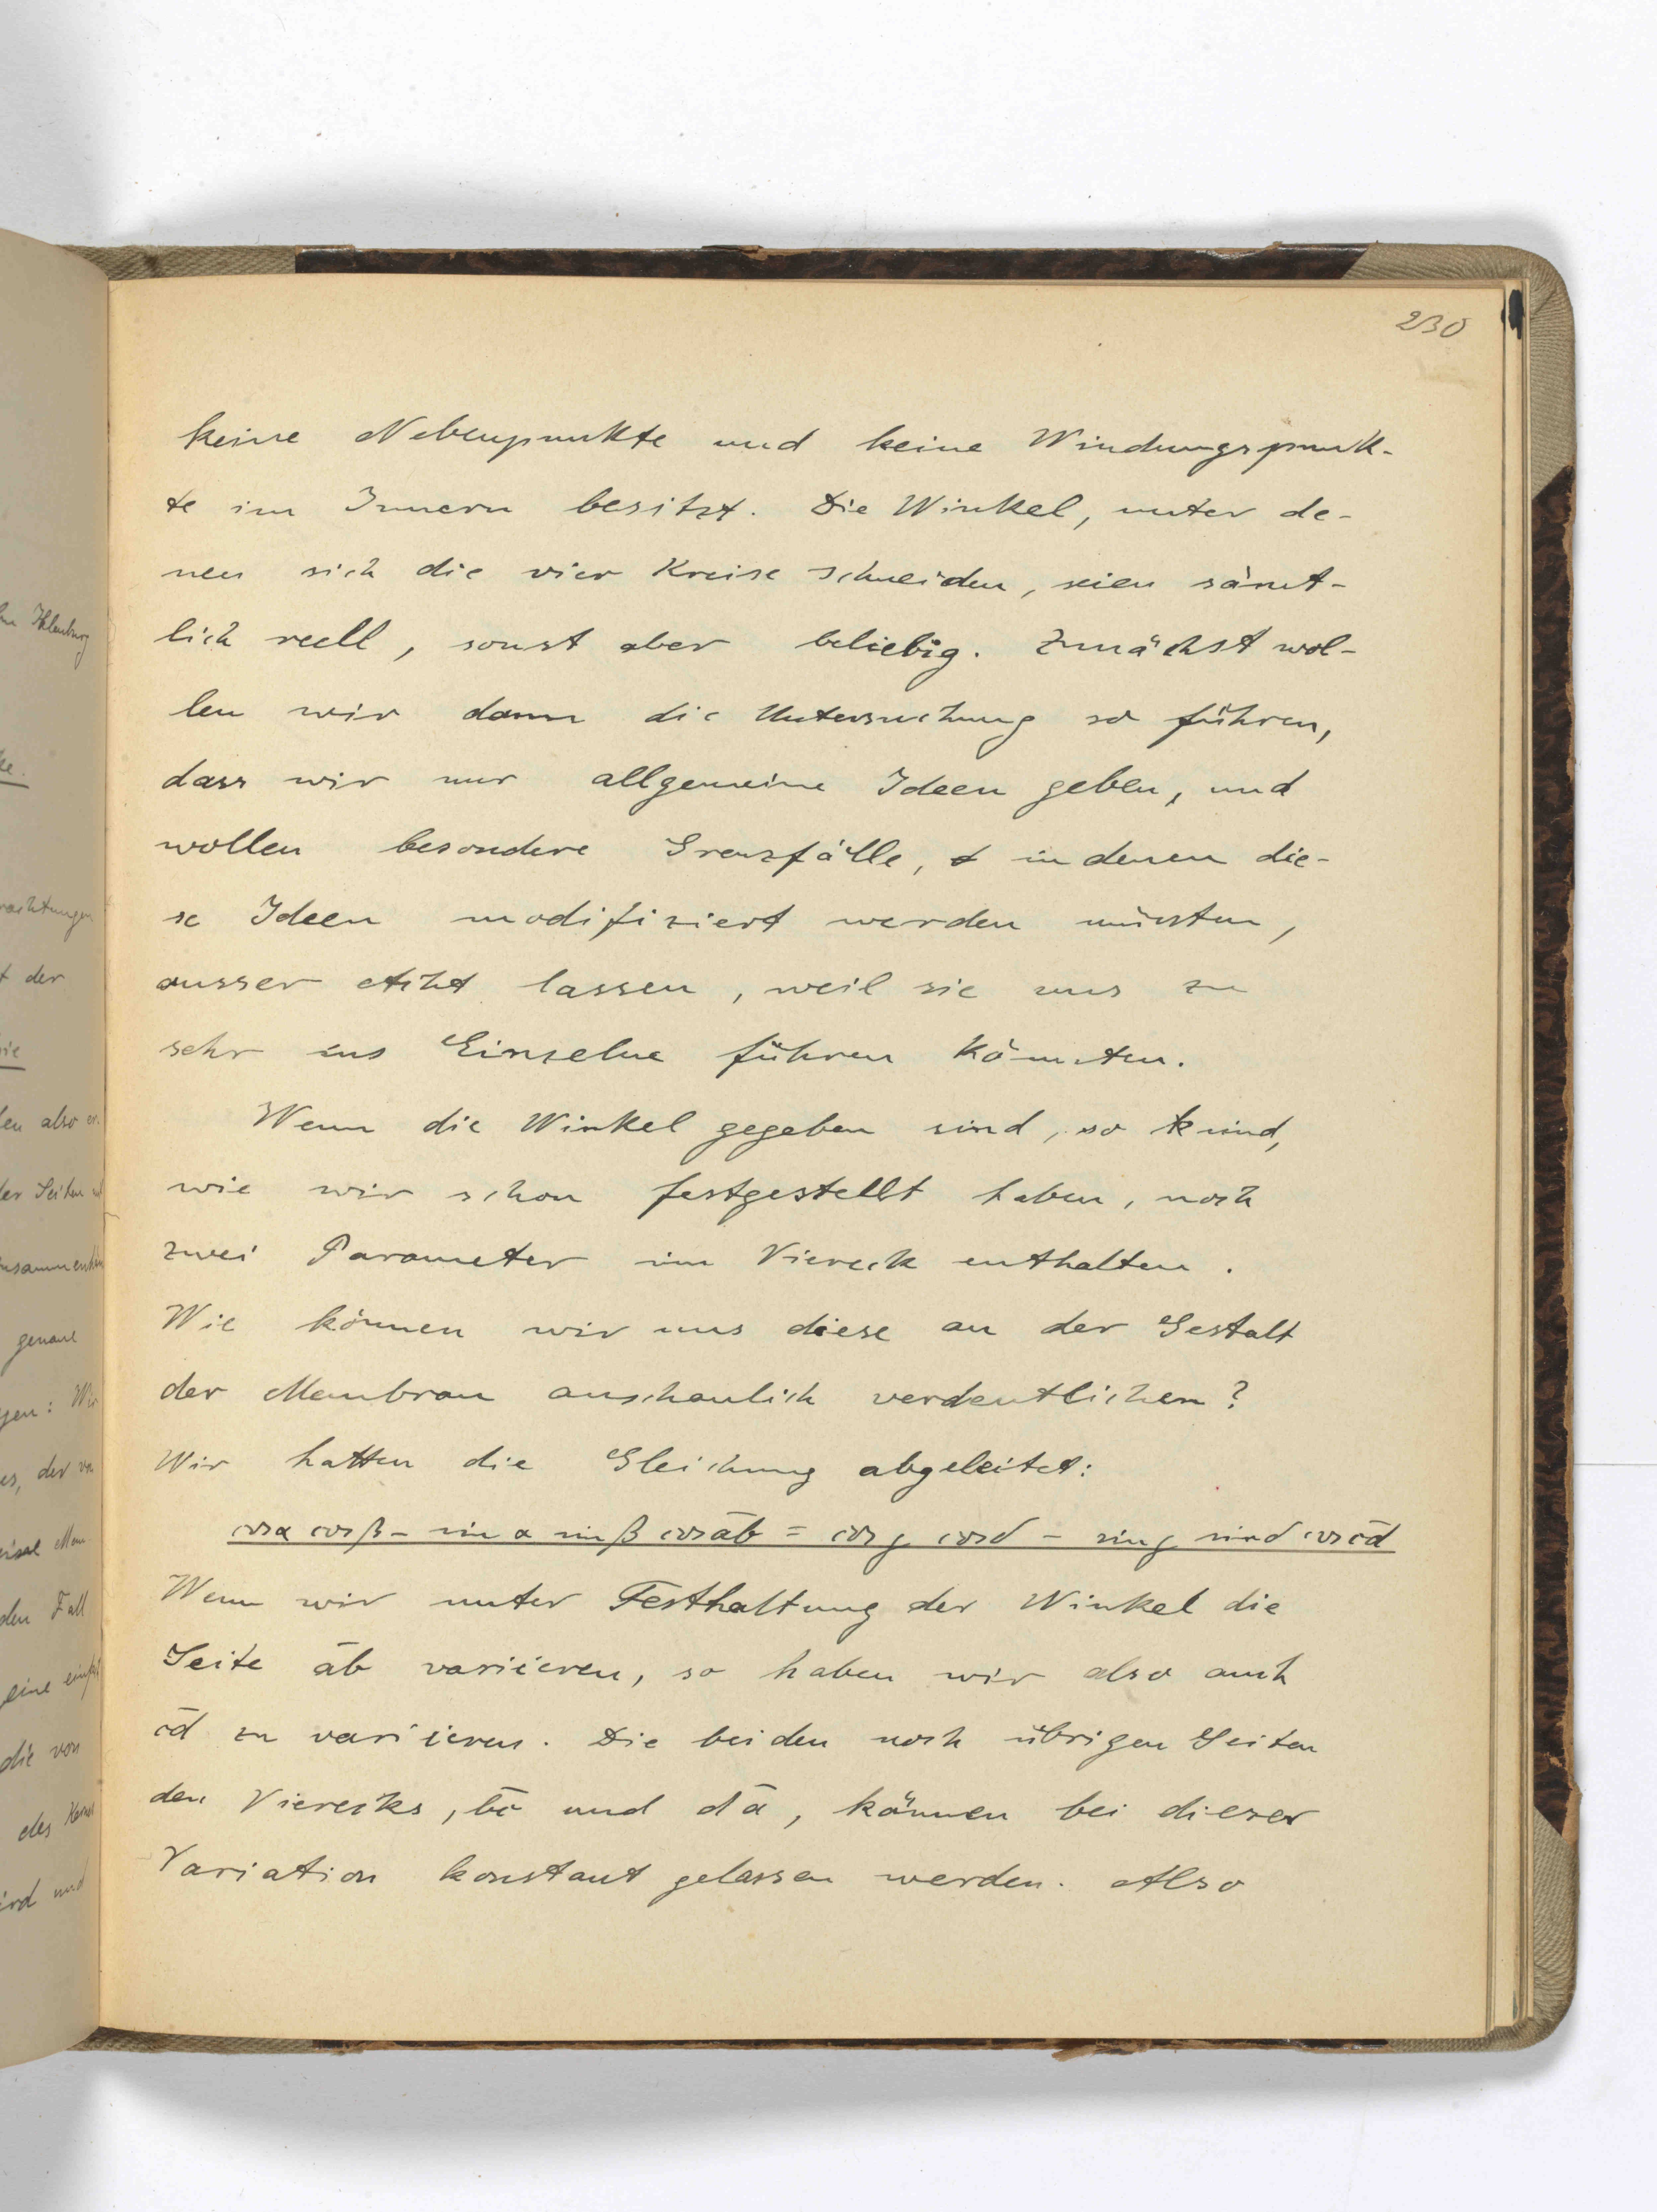 230
keine Nebenpunkte und keine Windungspunk-
te im Innern besitzt. Die Winkel, unter de-
nen sich die vier Kreise schneiden, seien sämt-
lich reell, sonst aber beliebig. Zunächst wol-
len wir dann die Untersuchung so führen,
dass wir nur allgemeine Ideen geben, und
wollen besondere Grenzfälle, in denen die-
se Ideen modifiziert werden müssten,
ausser Acht lassen, weil sie uns zu
sehr ins Einzelne führen könnten.
Wenn die Winkel gegeben sind, so sind,
wie wir schon festgestellt haben, noch
zwei Parameter im Viereck enthalten.
Wie können wir uns diese an der Gestalt
der Membran anschaulich verdeutlichen?
Wir hatten die Gleichung abgeleitet:
cos α cos β - sin α sin β cos a̅b̅ = cos γ cos δ - sin γ sin δ cos c̅d̅
Wenn wir unter Festhaltung der Winkel die
Seite a̅b̅ variieren, so haben wir also auch
c̅d̅ zu variieren. Die beiden noch übrigen Seiten
des Vierecks, b̅c̅ und d̅a̅, können bei dieser
Variation konstant gelassen werden. Also
t der
len also er-
genaue
den Fall
die von